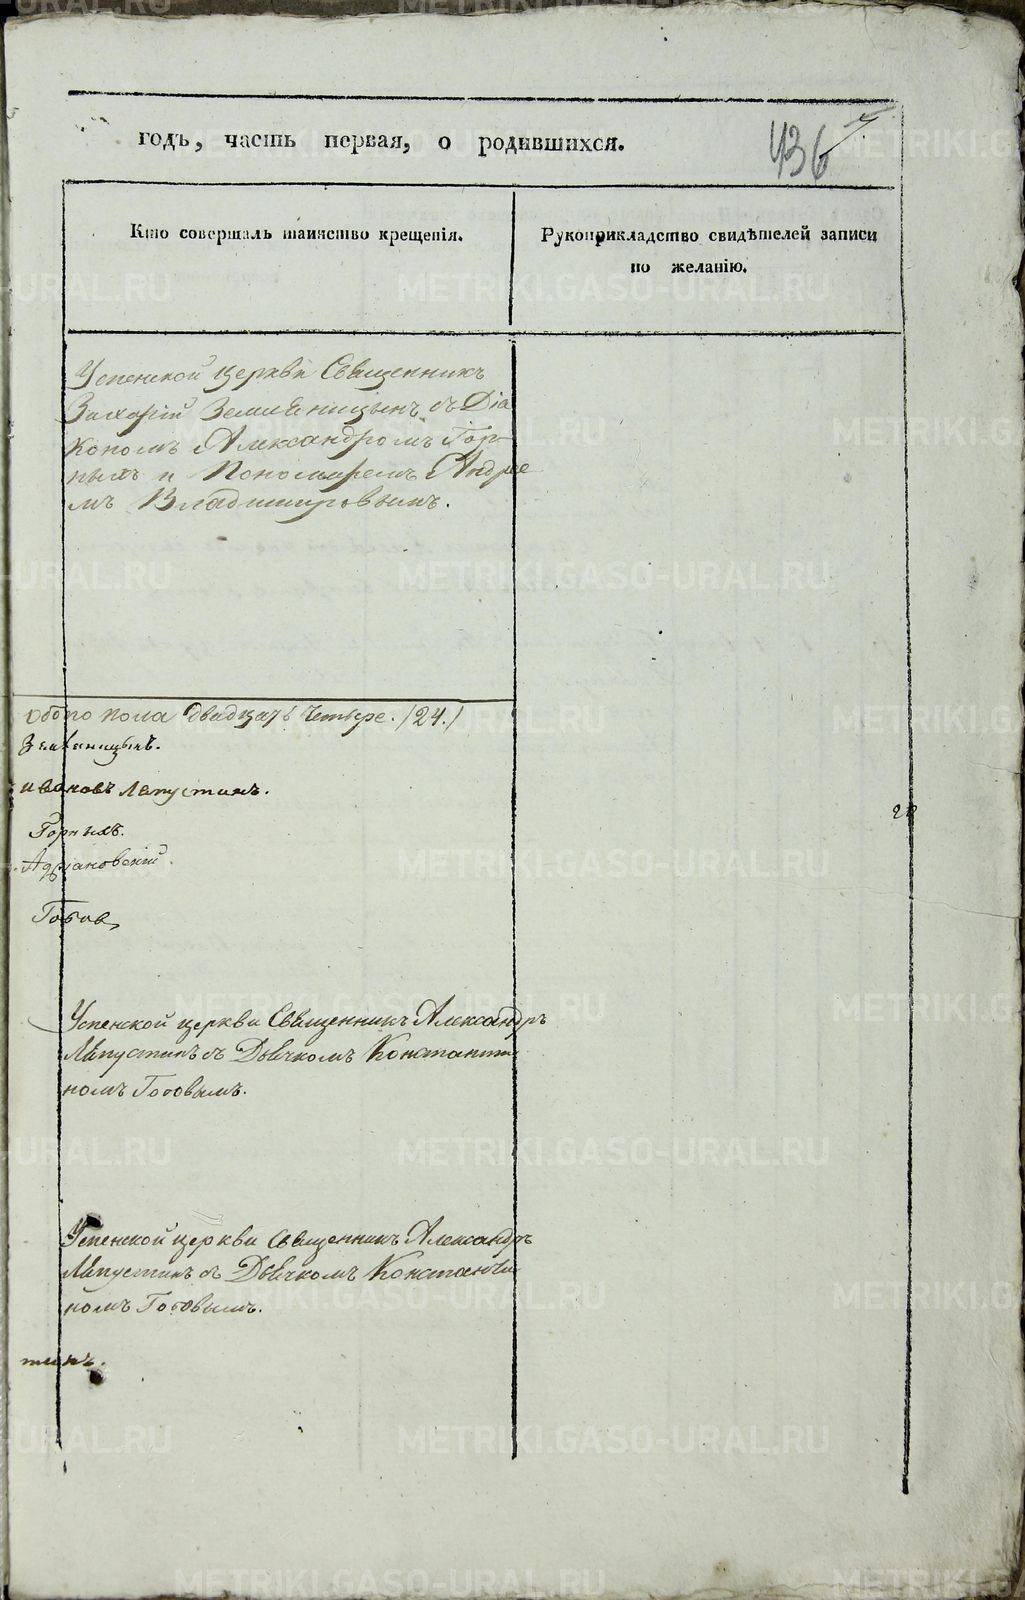 годъ, часть первая, о родившихся.
436
Кто совершалъ таинство крещенія.
Рукоприкладство свидѣтелей записи
по желанію.
Успенской церкви Священникъ
Захарій Земляницынъ съ Діа
кономъ Александромъ Гор-
ныхъ и Пономаремъ Андрее
мъ Владимировымъ.
обоего пола двадцать четыре. /24./
Земляницынъ.
ивановъ Ляпустинъ.
Горныхъ.
Адріановскій.
Топовъ
Успенской церкви Священникъ Александръ
Ляпустинъ съ Дьячкомъ Константи
номъ Топовымъ.
Успенской церкви Священникъ Александръ
Ляпустинъ съ Дьячкомъ Константи
номъ Топовымъ.
тинъ.
METRIKI.GASO-URAL.RU